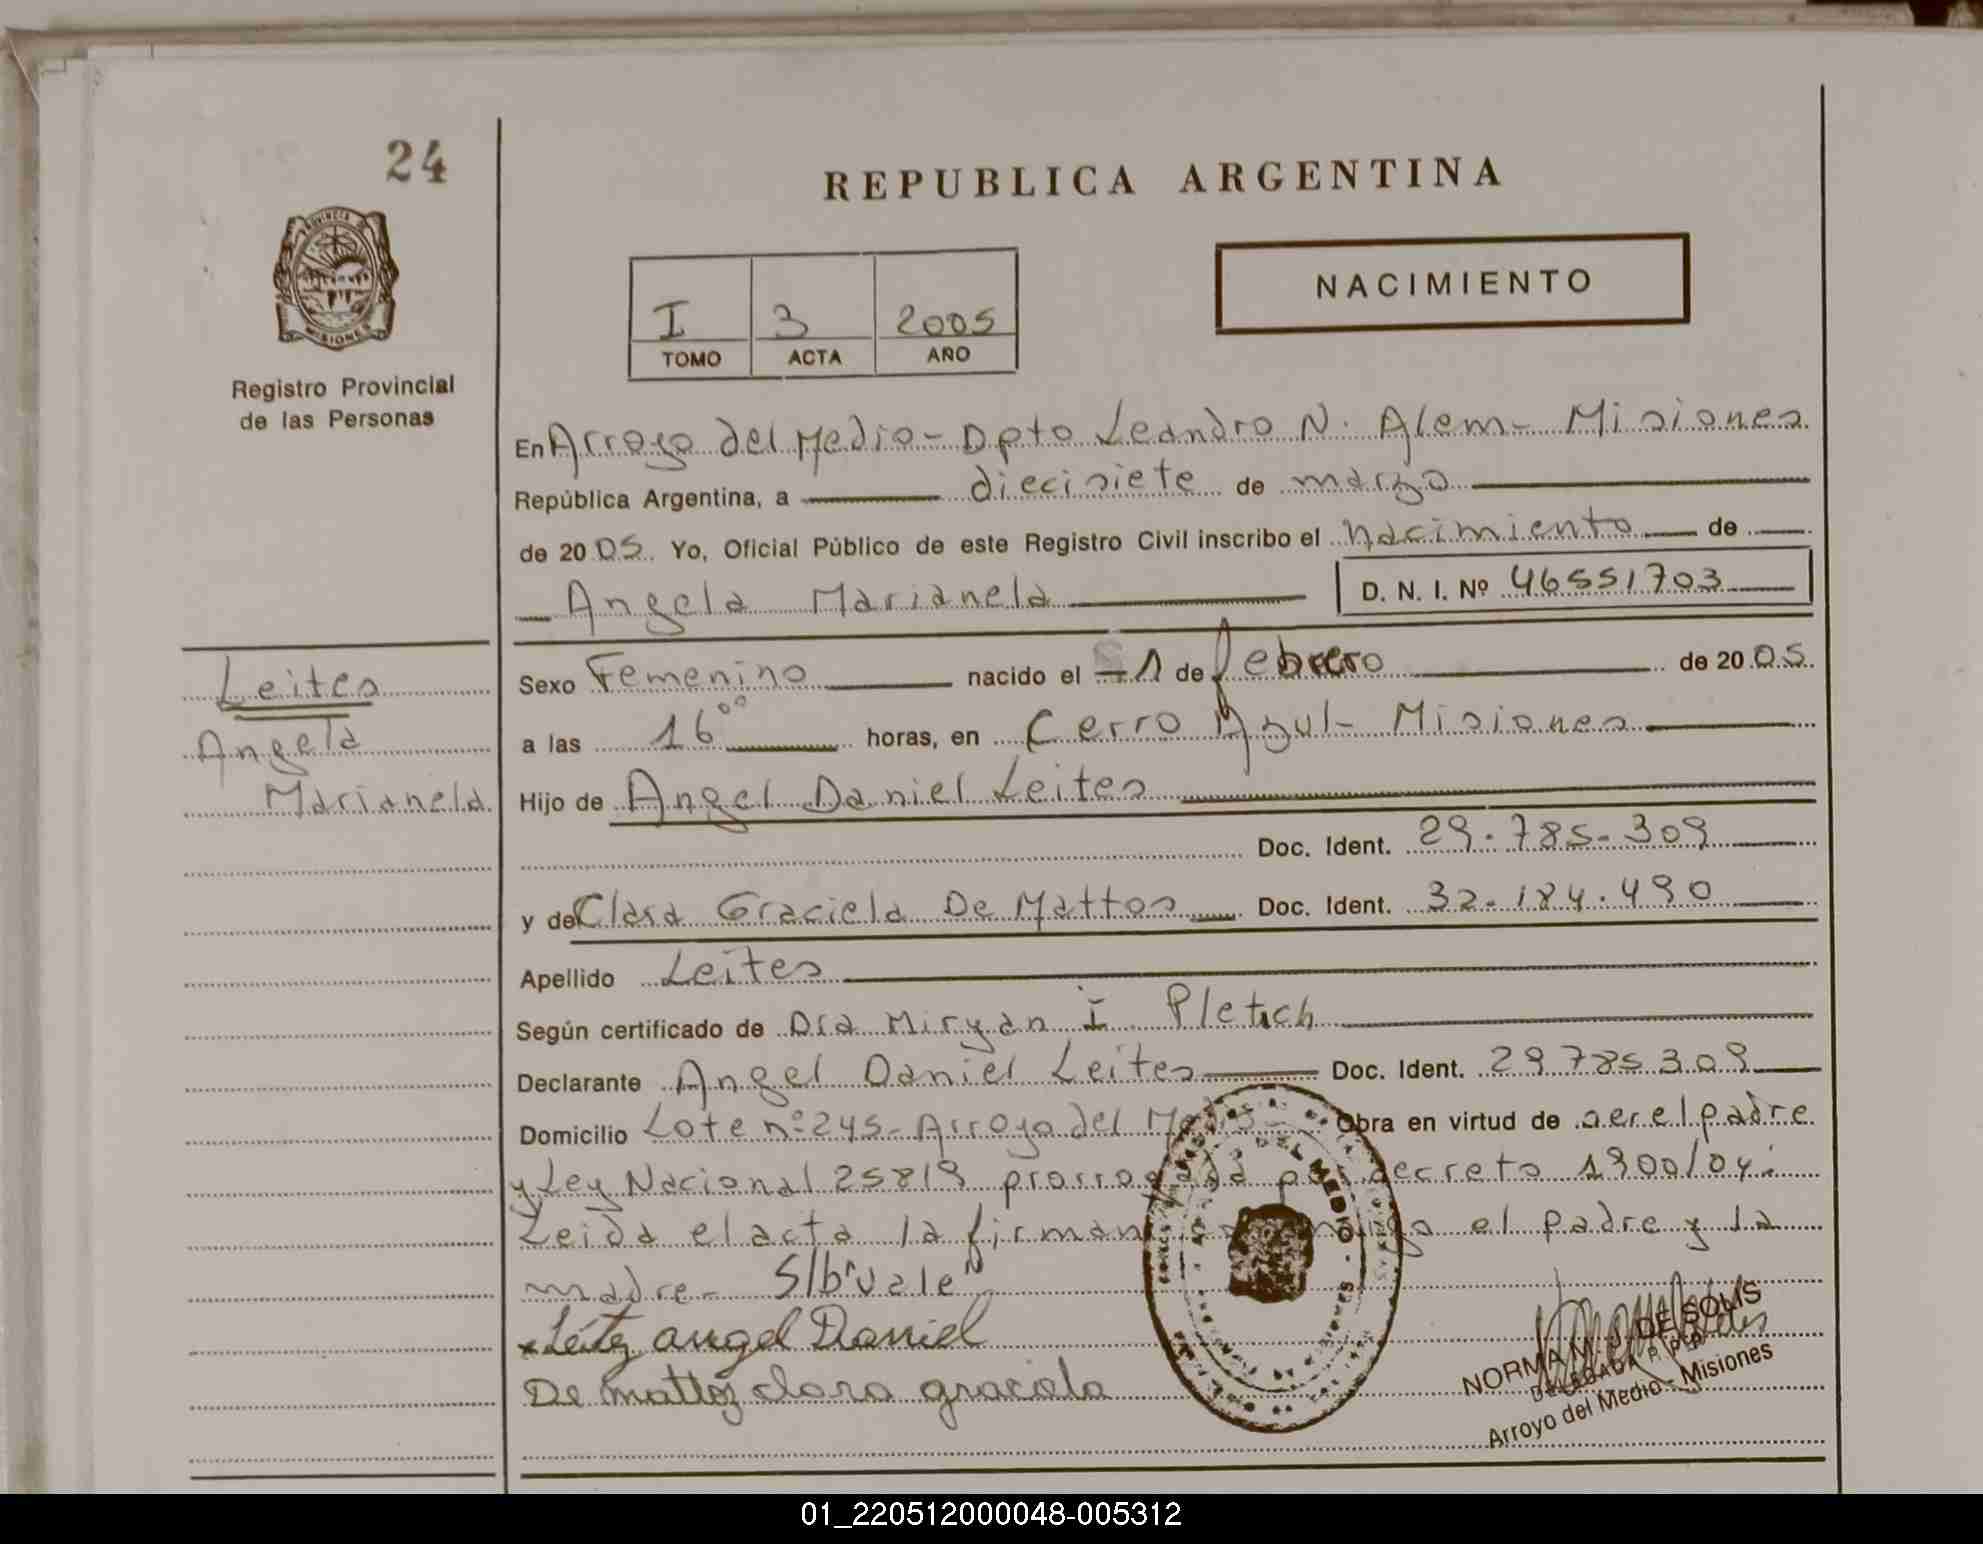 24
REPUBLICA ARGENTINA
PROVINCIA DE
MISIONES
NACIMIENTO
I 3 2005
TOMO ACTA AÑO
Registro Provincial
de las Personas
En Arroyo del Medio - Dpto Leandro N. Alem - Misiones
República Argentina, a diecisiete de marzo
de 2005. Yo, Oficial Público de este Registro Civil inscribo el nacimiento de
Angela Marianela D. N. I. Nº 46551703
Leites
Angela
Marianela
Sexo Femenino nacido el 1 de febrero de 2005.
a las 16⁰⁰ horas, en Cerro Azul - Misiones
Hijo de Angel Daniel Leites
Doc. Ident. 29.785.309
y de Clara Graciela De Mattos Doc. Ident. 32.184.490
Apellido Leites
Según certificado de Dra Miryan I. Pletsch
Declarante Angel Daniel Leites Doc. Ident. 29785309
Domicilio Lote nº 245 - Arroyo del Medio Obra en virtud de ser el padre
y Ley Nacional 25819 prorrogada por decreto 1900/04:
Leida el acta la firman conmigo el padre y la
madre - S/b "vale"
Leitez angel Daniel
De Mattoz clara graciela
DEL MEDIO
NORMA M. J. DE SOLIS
DELEGADA R. P. P.
Arroyo del Medio - Misiones
01_220512000048-005312